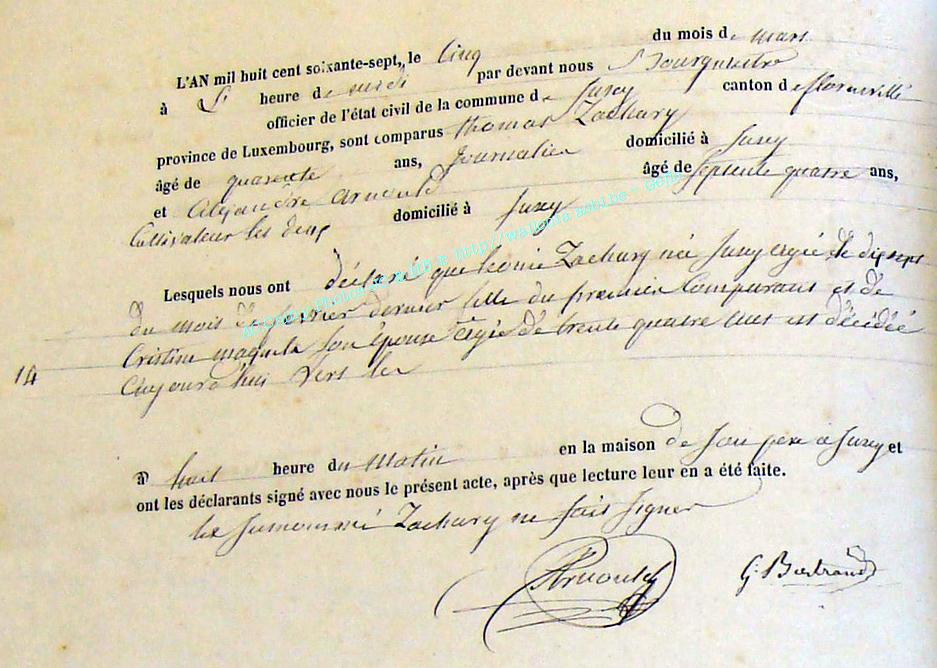 L'AN mil huit cent soixante-sept, le Cinq du mois de mars
à heure de midi par devant nous Bourgmestre
officier de l'état civil de la commune de Suxy canton de florenville
province de Luxembourg, sont comparus thomas Zachary
âgé de quarente ans, Journalier domicilié à Suxy
et Alexandre Arnould âgé de Septente quatre ans,
Cultivateur les deux domicilié à Suxy
Lesquels nous ont déclaré que Leonie Zachary né Suxy agée de dix sept
du mois de fevrier dernier fille du premier Comparant et de
Cristine son épouse agée de trente quatre ans est décidée
14
aujourd'hui vers les
à huit heure du Matin en la maison de son pere a Suxy et
ont les déclarants signé avec nous le présent acte, après que lecture leur en a été faite.
Zachary ne sait signer
Arnould G. Bertrand